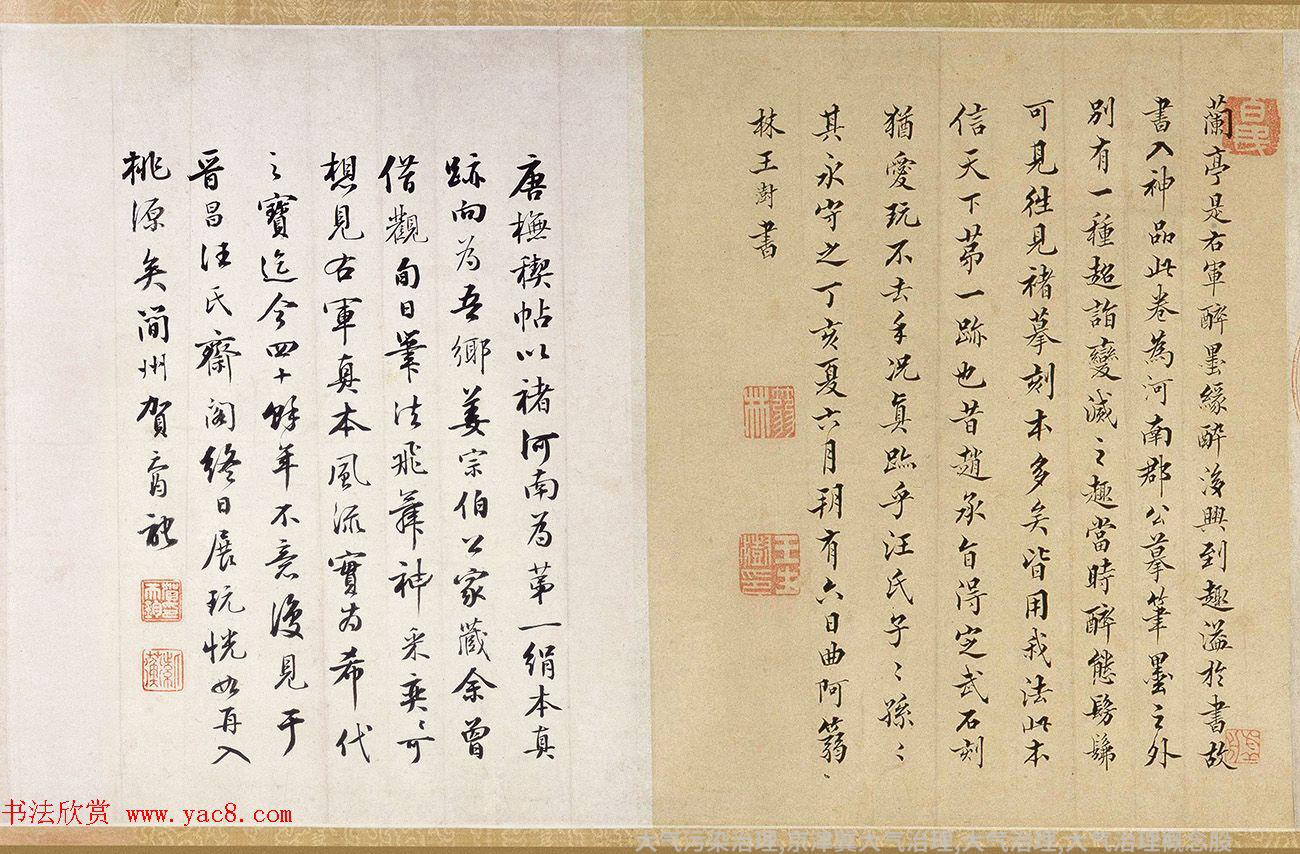 蘭亭是右軍醉墨緣醉後興到趣溢於書故
書入神品此卷為河南郡公摹筆墨之外
別有一種超詣變滅之趣當時醉態髣髴
可見往見褚摹刻本多矣皆用我法此本
信天下苐一跡也昔趙承旨得定武石刻
猶愛玩不去手況真跡乎汪氏子〻孫〻
其永守之丁亥夏六月朔有六日曲阿蒻〻
林王澍書
唐橅稧帖以褚河南為苐一絹本真
跡向為吾鄉姜宗伯公家藏余曾
借觀旬日筆法飛舞神采奕〻可
想見右軍真本風流實為希代
之寶迄今四十餘年不意復見于
晉昌汪氏齋閣終日展玩恍如再入
桃源矣蕳州賀
書法欣赏 www.yac8.com
大气污染治理,京津冀大气治理,大气治理,大气治理概念股